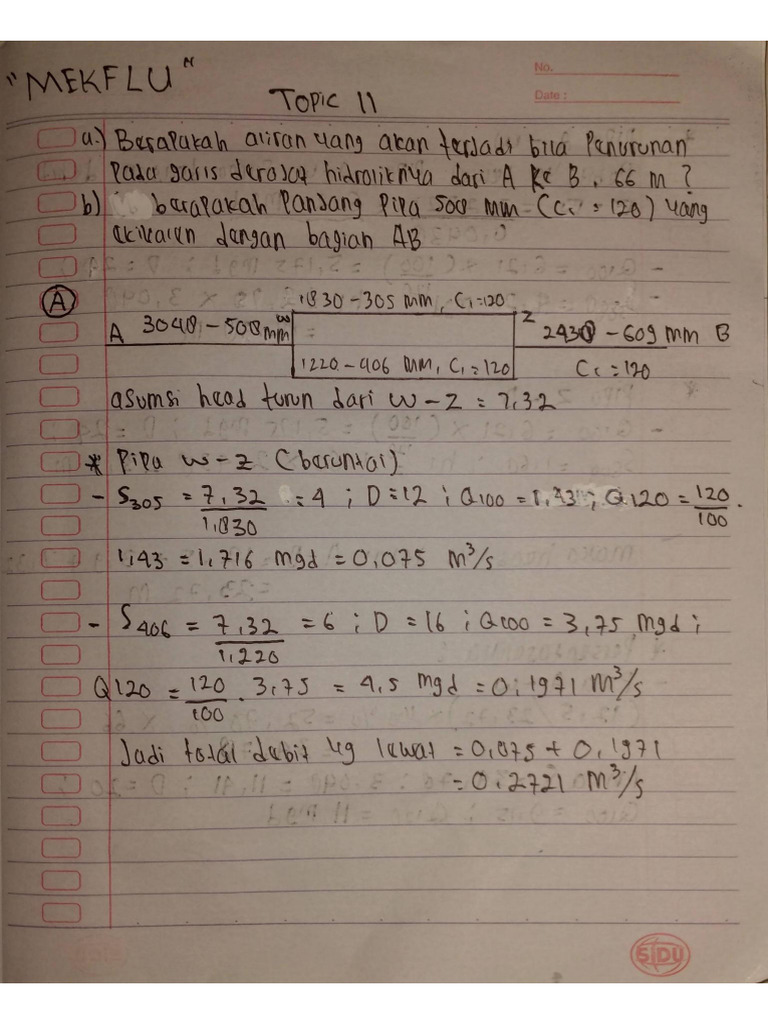 "MEKFLU"
No.
Topic 11
Date :
a.) Berapakah aliran yang akan terjadi bila Penurunan
Pada garis derajat hidroliknya dari A ke B, 66 m ?
b) berapakah Panjang Pipa 508 mm (C1 = 120) yang
ekivalen dengan bagian AB
A
1830 - 305 mm, C1 = 120
A 3048 - 508 mm W
Z 2438 - 609 mm B
1220 - 406 mm, C1 = 120
C1 = 120
asumsi head turun dari W - Z = 7,32
* Pipa W - Z (beruntai)
- S305 = 7,32 / 1,830 = 4 ; D = 12 ; Q100 = 1,43 ; Q120 = 120 / 100 .
1,43 = 1,716 mgd = 0,075 m³/s
- S406 = 7,32 / 1,220 = 6 ; D = 16 ; Q100 = 3,75 mgd ;
Q120 = 120 / 100 . 3,75 = 4,5 mgd = 0,1971 m³/s
Jadi total debit yg lewat = 0,075 + 0,1971
= 0,2721 m³/s
SIDU